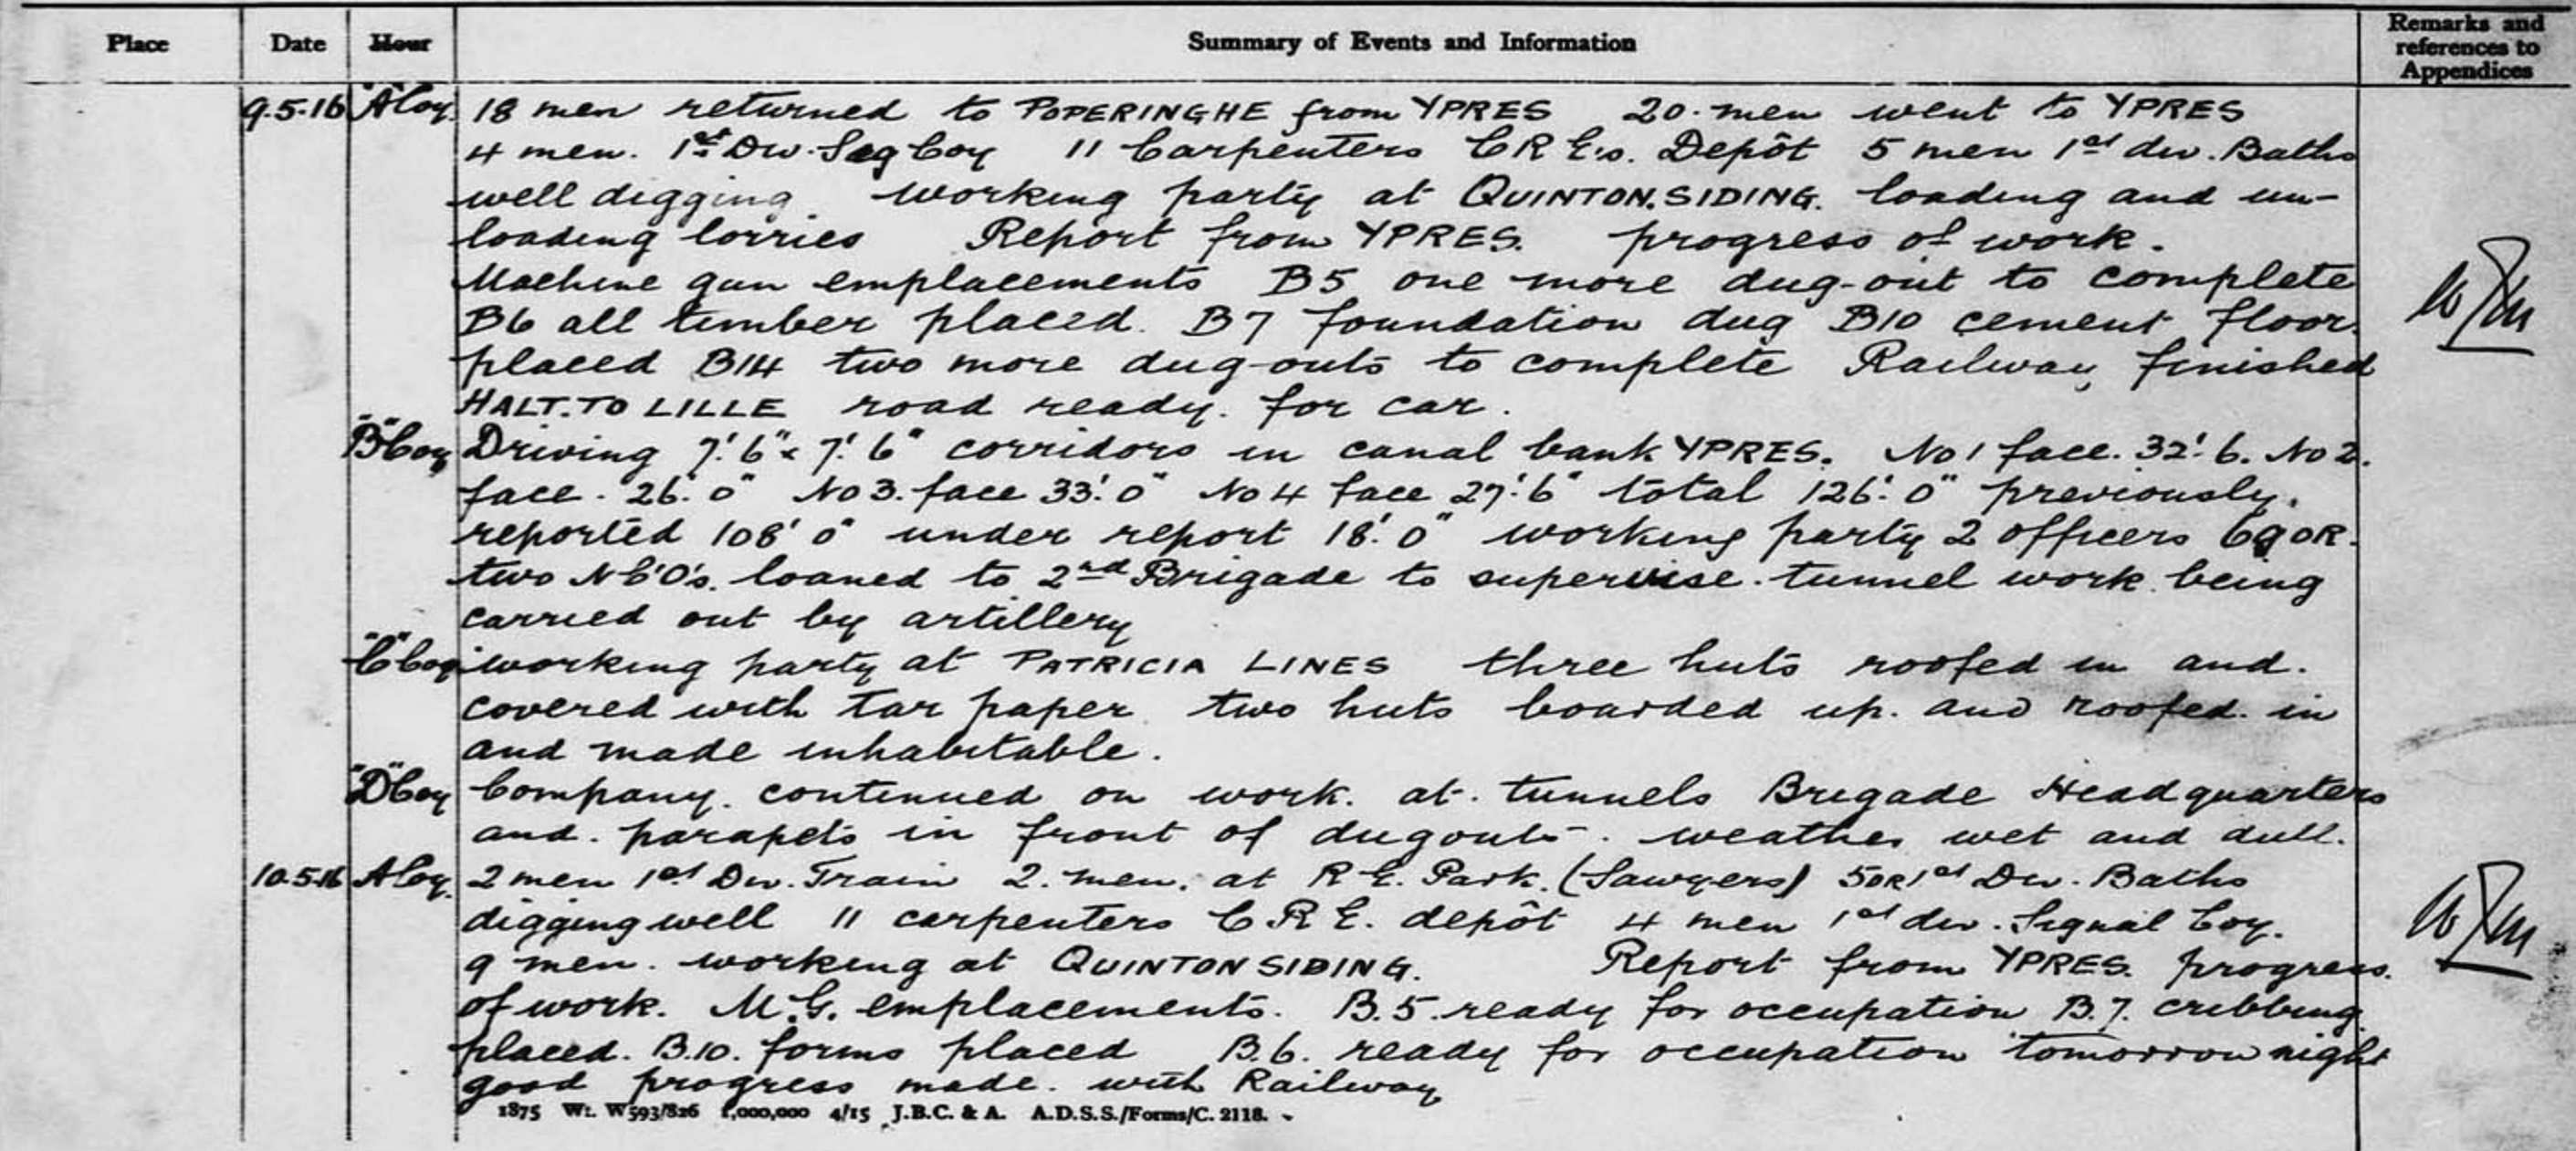 Place Date Hour Summary of Events and Information Remarks and references to Appendices
9.5.16 "A" Coy. 18 men returned to POPERINGHE from YPRES 20 men went to YPRES
4 men. 1st Div. Sig Coy 11 Carpenters C R E's. Depôt 5 men 1st div. Baths
well digging. working party at QUINTON. SIDING. loading and un-
loading lorries Report from YPRES. progress of work.
Machine gun emplacements B5 one more dug-out to complete
B6 all timber placed. B7 foundation dug B10 cement floor.
placed B14 two more dug-outs to complete Railway finished
HALT. TO LILLE road ready. for car.
"B" Coy Driving 7'.6" x 7'.6" corridors in canal bank YPRES. No 1 face. 32'.6. No 2.
face. 26'.0" No 3. face 33'.0" No 4 face 27'.6" total 126'.0" previously.
reported 108'0" under report 18'.0" working party 2 officers 69 OR.
two N.C.O's. loaned to 2nd Brigade to supervise. tunnel work. being
carried out by artillery
"C" Coy working party at PATRICIA LINES three huts roofed in and.
covered with tar paper. two huts boarded up. and roofed. in
and made inhabitable.
"D" Coy Company. continued on work. at. tunnels Brigade Headquarters
and. parapets in front of dugouts. weather wet and dull.
10.5.16 A Coy. 2 men 1st Div. Train 2. men. at R.E. Park. (Sawyers) 5 OR 1st Div. Baths
digging well 11 carpenters C.R.E. depôt 4 men 1st div. Signal Coy.
9 men. working at QUINTON SIDING. Report from YPRES. progress.
of work. M.G. emplacements. B.5. ready for occupation B.7. cribbing.
placed. B.10. forms placed B.6. ready for occupation tomorrow night
good progress made. with Railway
1875 Wt. W593/826 1,000,000 4/15 J.B.C. & A. A.D.S.S./Forms/C. 2118.